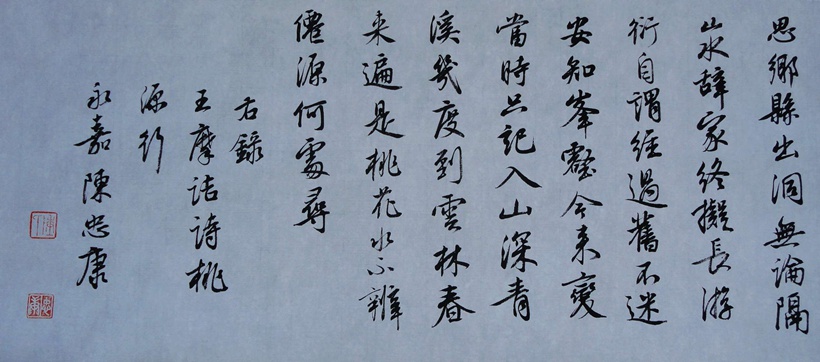 思鄉縣出洞無論隔
山水辞家終擬長游
衍自謂經過舊不迷
安知峯壑今来變
當時只記入山深青
溪幾度到雲林春
来遍是桃花水不辨
僊源何處尋
右錄
王摩詰詩桃
源行
永嘉陳忠康